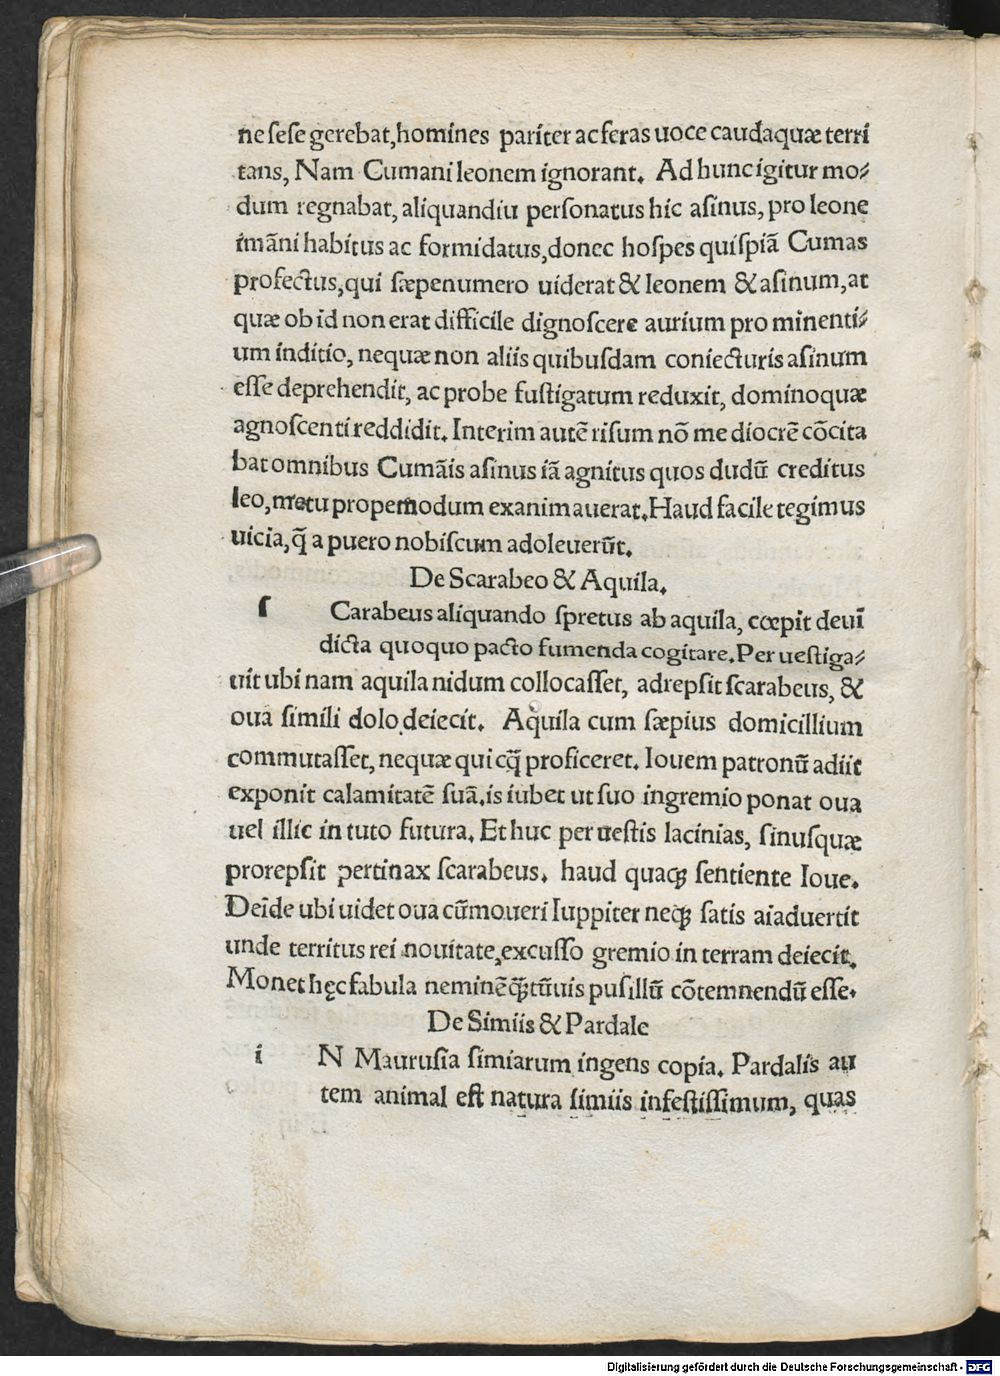 ne ſeſe gerebat, homines pariter ac feras uoce caudaquæ terri
tans, Nam Cumani leonem ignorant. Ad hunc igitur mo⸗
dum regnabat, aliquandiu perſonatus hic aſinus, pro leone
imãni habitus ac formidatus, donec hoſpes quiſpiã Cumas
profectus, qui ſæpenumero uiderat & leonem & aſinum, at
quæ ob id non erat difficile dignoſcere aurium pro minenti⸗
um inditio, nequæ non aliis quibuſdam coniecturis aſinum
eſſe deprehendit, ac probe fuſtigatum reduxit, dominoquæ
agnoſcenti reddidit. Interim autẽ riſum nõ me diocrẽ cõcita
bat omnibus Cumãis aſinus iã agnitus quos dudũ creditus
leo, metu propemodum exanimauerat. Haud facile tegimus
uicia, q̃ a puero nobiſcum adoleuerũt.
De Scarabeo & Aquila.
ſ Carabeus aliquando ſpretus ab aquila, cœpit deuĩ
dicta quoquo pacto fumenda cogitare. Per ueſtiga⸗
uit ubi nam aquila nidum collocaſſet, adrepſit ſcarabeus, &
oua ſimili dolo deiecit. Aquila cum ſæpius domicillium
commutaſſet, nequæ qui cq̃ proficeret. Iouem patronũ adiit
exponit calamitatẽ ſuã. is iubet ut ſuo ingremio ponat oua
uel illic in tuto futura. Et huc per ueſtis lacinias, ſinuſquæ
prorepſit pertinax ſcarabeus. haud quacꝗ ſentiente Ioue.
Deĩde ubi uidet oua cũ moueri Iuppiter necꝗ ſatis aiaduertit
unde territus rei nouitate, excuſſo gremio in terram deiecit.
Monet hęc fabula neminẽ cꝗ̃tũuis puſillũ cõtemnendũ eſſe.
De Simiis & Pardale
i N Mauruſia ſimiarum ingens copia. Pardalis au
tem animal eſt natura ſimiis infeſtiſſimum, quas
Digitalisierung gefördert durch die Deutsche Forschungsgemeinschaft - DFG